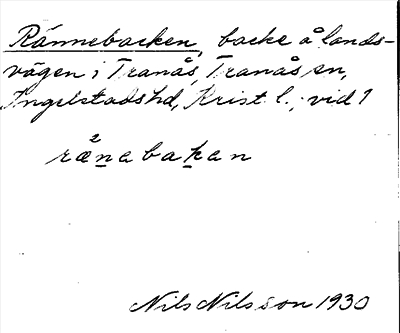 Rännebacken, backe å lands-
vägen i Tranås, Tranås sn,
Ingelstads hd, Krist. l., vid 1
2
rænabakan
Nils Nilsson 1930